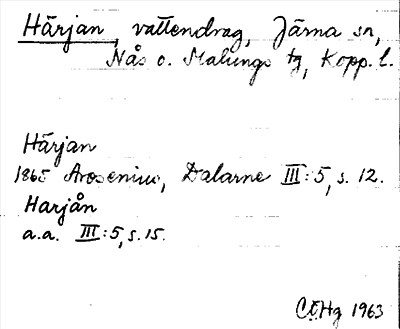 Härjan, vattendrag, Järna sn,
Nås o. Malungs tg, Kopp. l.
Härjan
1865 Arosenius, Dalarne III:5, s. 12.
Harjån
a.a. III:5, s. 15.
1963